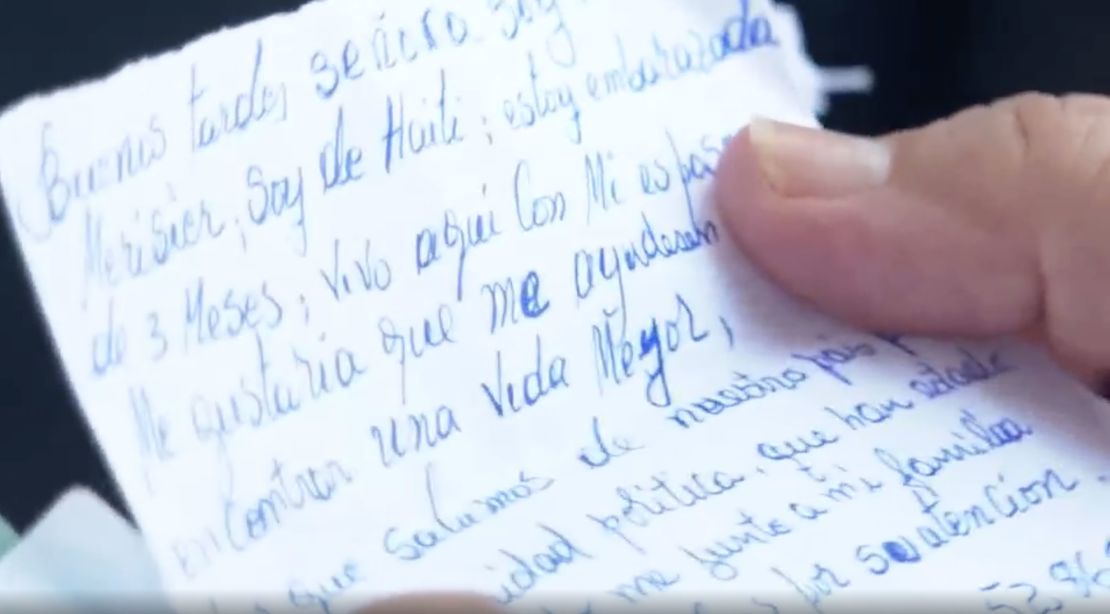 Buenas tardes señora soy
Merisier, Soy de Haiti; estoy embarazada
de 3 Meses; vivo aqui Con Mi
Me gustaria que me ayudaran
encontrar una vida Mejor,
que salimos de nuestro país
política, que han estado
me junto a mi familia
por su atención.